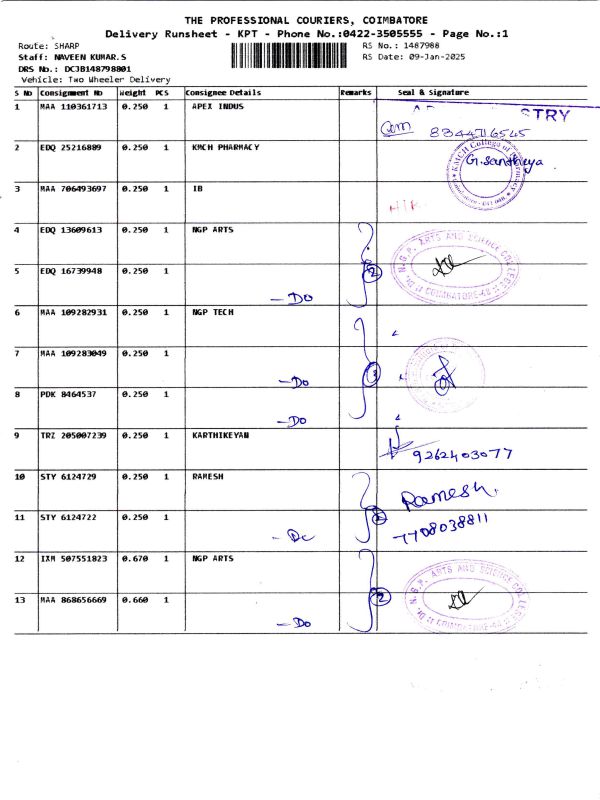 THE PROFESSIONAL COURIERS, COIMBATORE
Delivery Runsheet - KPT - Phone No.:0422-3505555 - Page No.:1
Route: SHARP RS No.: 1487988
Staff: NAVEEN KUMAR.S RS Date: 09-Jan-2025
DRS No.: DCJB148798801
Vehicle: Two Wheeler Delivery
S No Consignment No Weight PCS Consignee Details Remarks Seal & Signature
1 MAA 110361713 0.250 1 APEX INDUS
STRY
8344716545
2 EDQ 25216889 0.250 1 KMCH PHARMACY
KMCH College of Pharmacy
G. Sandhiya
3 MAA 706493697 0.250 1 IB
4 EDQ 13609613 0.250 1 NGP ARTS
Dr. N.G.P. ARTS AND SCIENCE COLLEGE
COIMBATORE-48
5 EDQ 16739948 0.250 1
- Do 2
6 MAA 109282931 0.250 1 NGP TECH
7 MAA 109283049 0.250 1
- Do 3
8 PDK 8464537 0.250 1
- Do
9 TRZ 205007239 0.250 1 KARTHIKEYAN
9262403077
10 STY 6124729 0.250 1 RAMESH
Ramesh.
11 STY 6124722 0.250 1
- Do
7708038811
12 IXM 507551823 0.670 1 NGP ARTS
Dr. N.G.P. ARTS AND SCIENCE COLLEGE
COIMBATORE-48
13 MAA 868656669 0.660 1
- Do 2